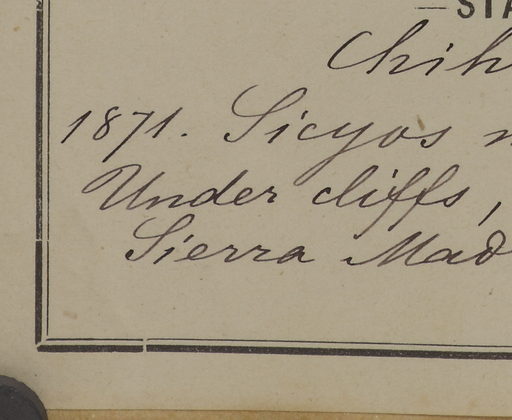 —STA
Chih
1871. Sicyos
Under cliffs,
Sierra Mad